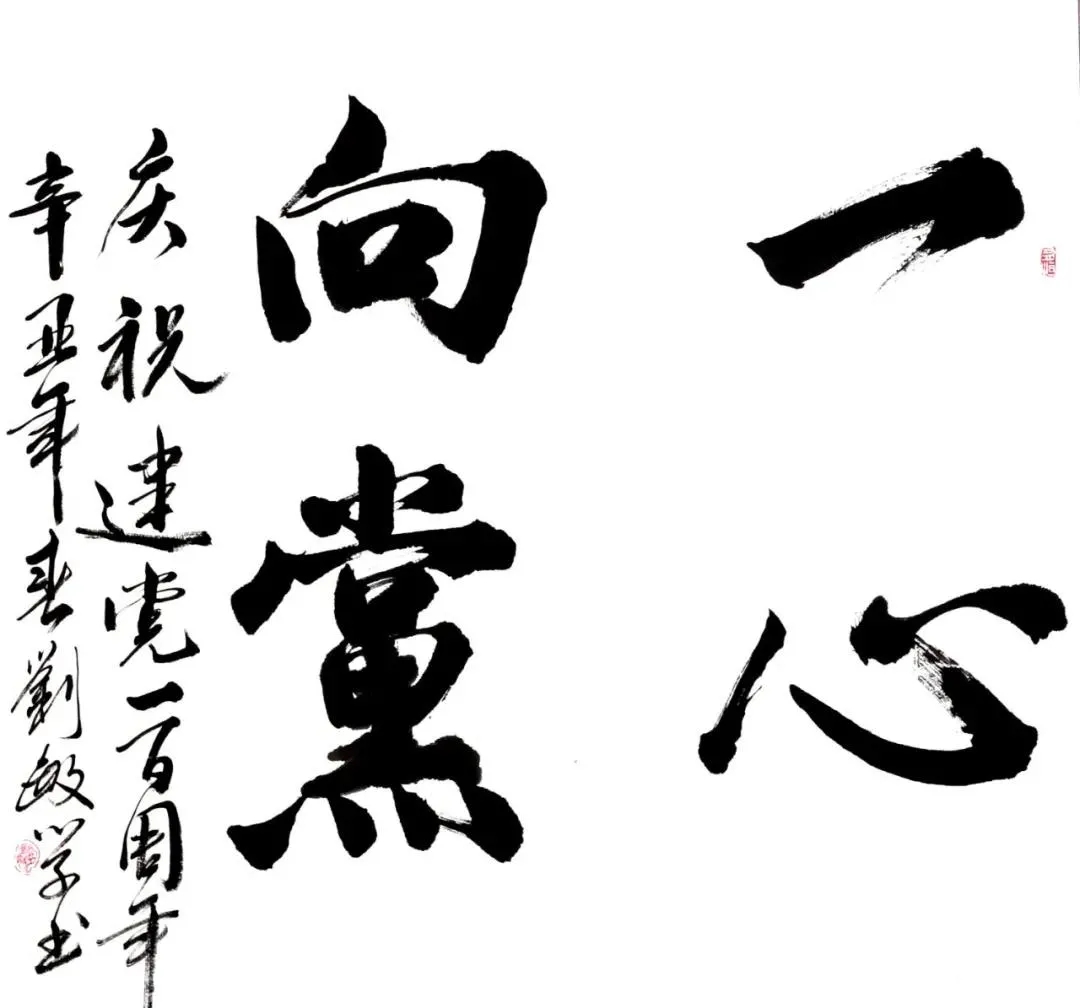 一心
向黨
庆祝建党一百周年
辛丑年春劉敏学书